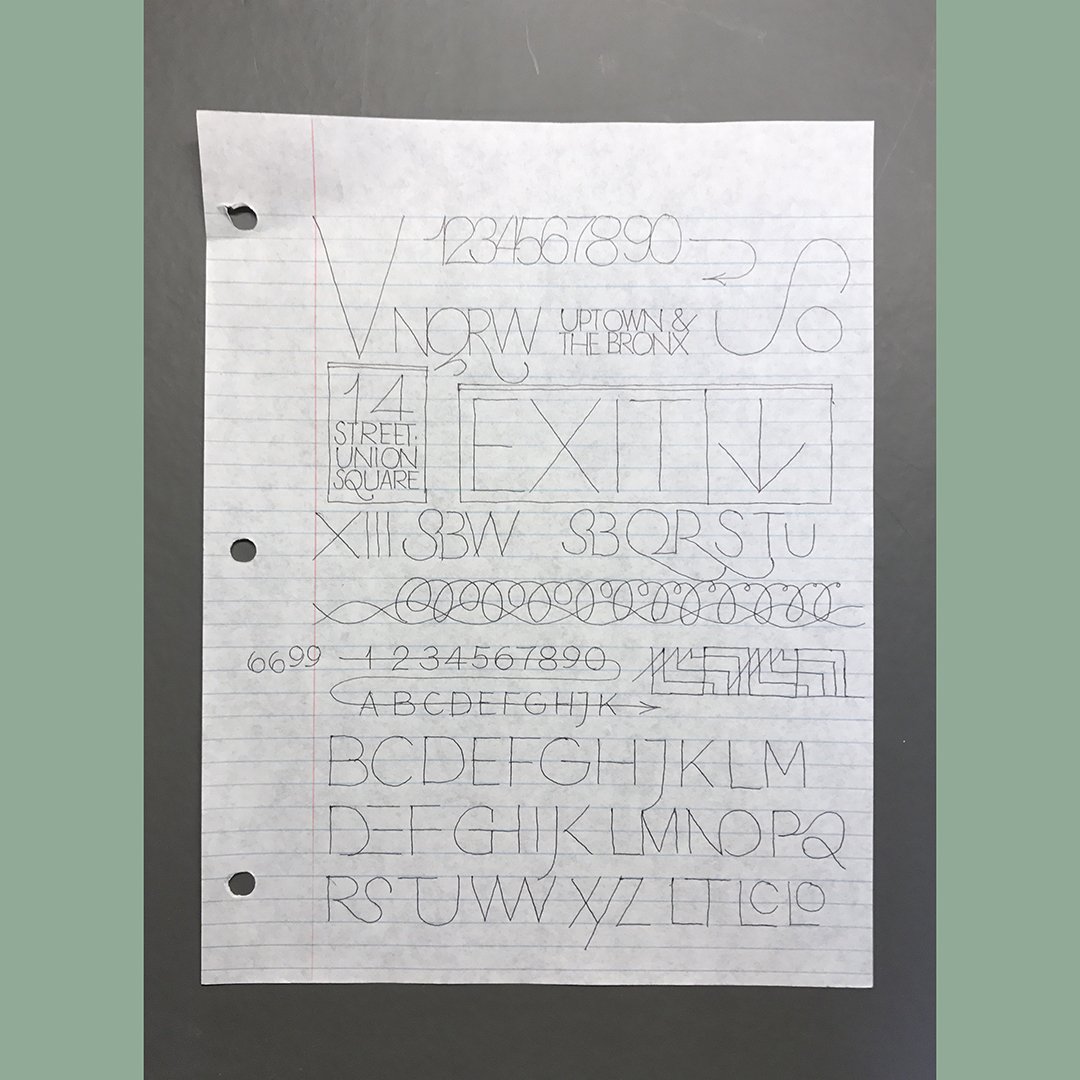 1234567890
V NQRW UPTOWN & So
THE BRONX
14
STREET.
UNION
SQUARE
EXIT ↓
XIII SBW SBQRSTU
6699 1234567890
ABCDEFGHJK
BCDEFGHJKLM
DEFGHIJKLMNOPQ
RSTUVWXYZ LT LCLO